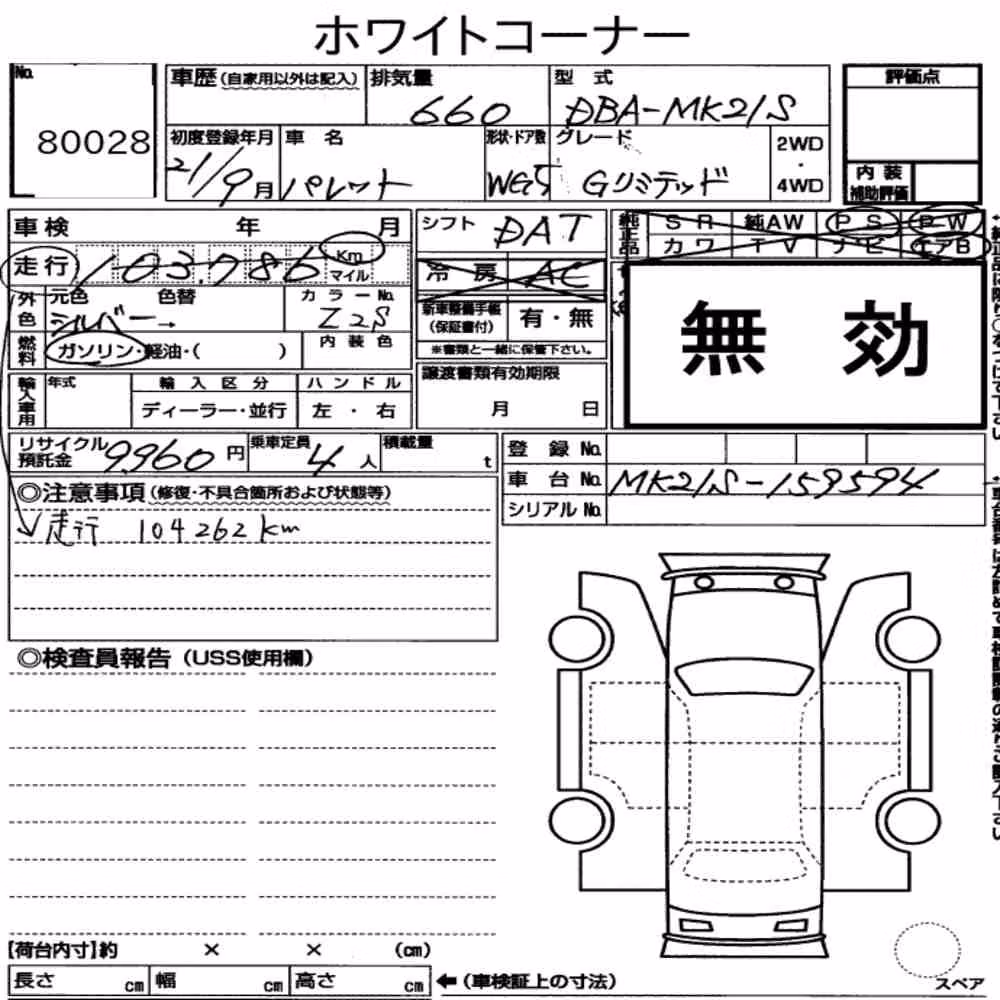 ホワイトコーナー
No. 80028
車歴(自家用以外は記入) 排気量 660 型式 DBA-MK21S
評価点
初度登録年月 21/9月 車名 パレット 形状・ドア数 WG5 グレード Gリミテッド 2WD・4WD
内装補助評価
車検 年 月
シフト DAT
純正品 SR 純AW PS PW
カワ TV ナビ エアB
走行 103,786 Km マイル
冷房 AC
外色 元色 シルバー→ 色替 カラーNo. Z2S
新車整備手帳(保証書付) 有・無
※書類と一緒に保管下さい。
無効
燃料 ガソリン・軽油・( ) 内装色
輸入車用 年式 輸入区分 ハンドル
ディーラー・並行 左・右
譲渡書類有効期限
月 日
リサイクル預託金 9,960円 乗車定員 4人 積載量 t
登録No.
車台No. MK21S-159594
シリアルNo.
◎注意事項(修復・不具合箇所および状態等)
走行 104262km
◎検査員報告(USS使用欄)
[荷台内寸]約 × × (cm)
長さ cm 幅 cm 高さ cm ←(車検証上の寸法)
スペア